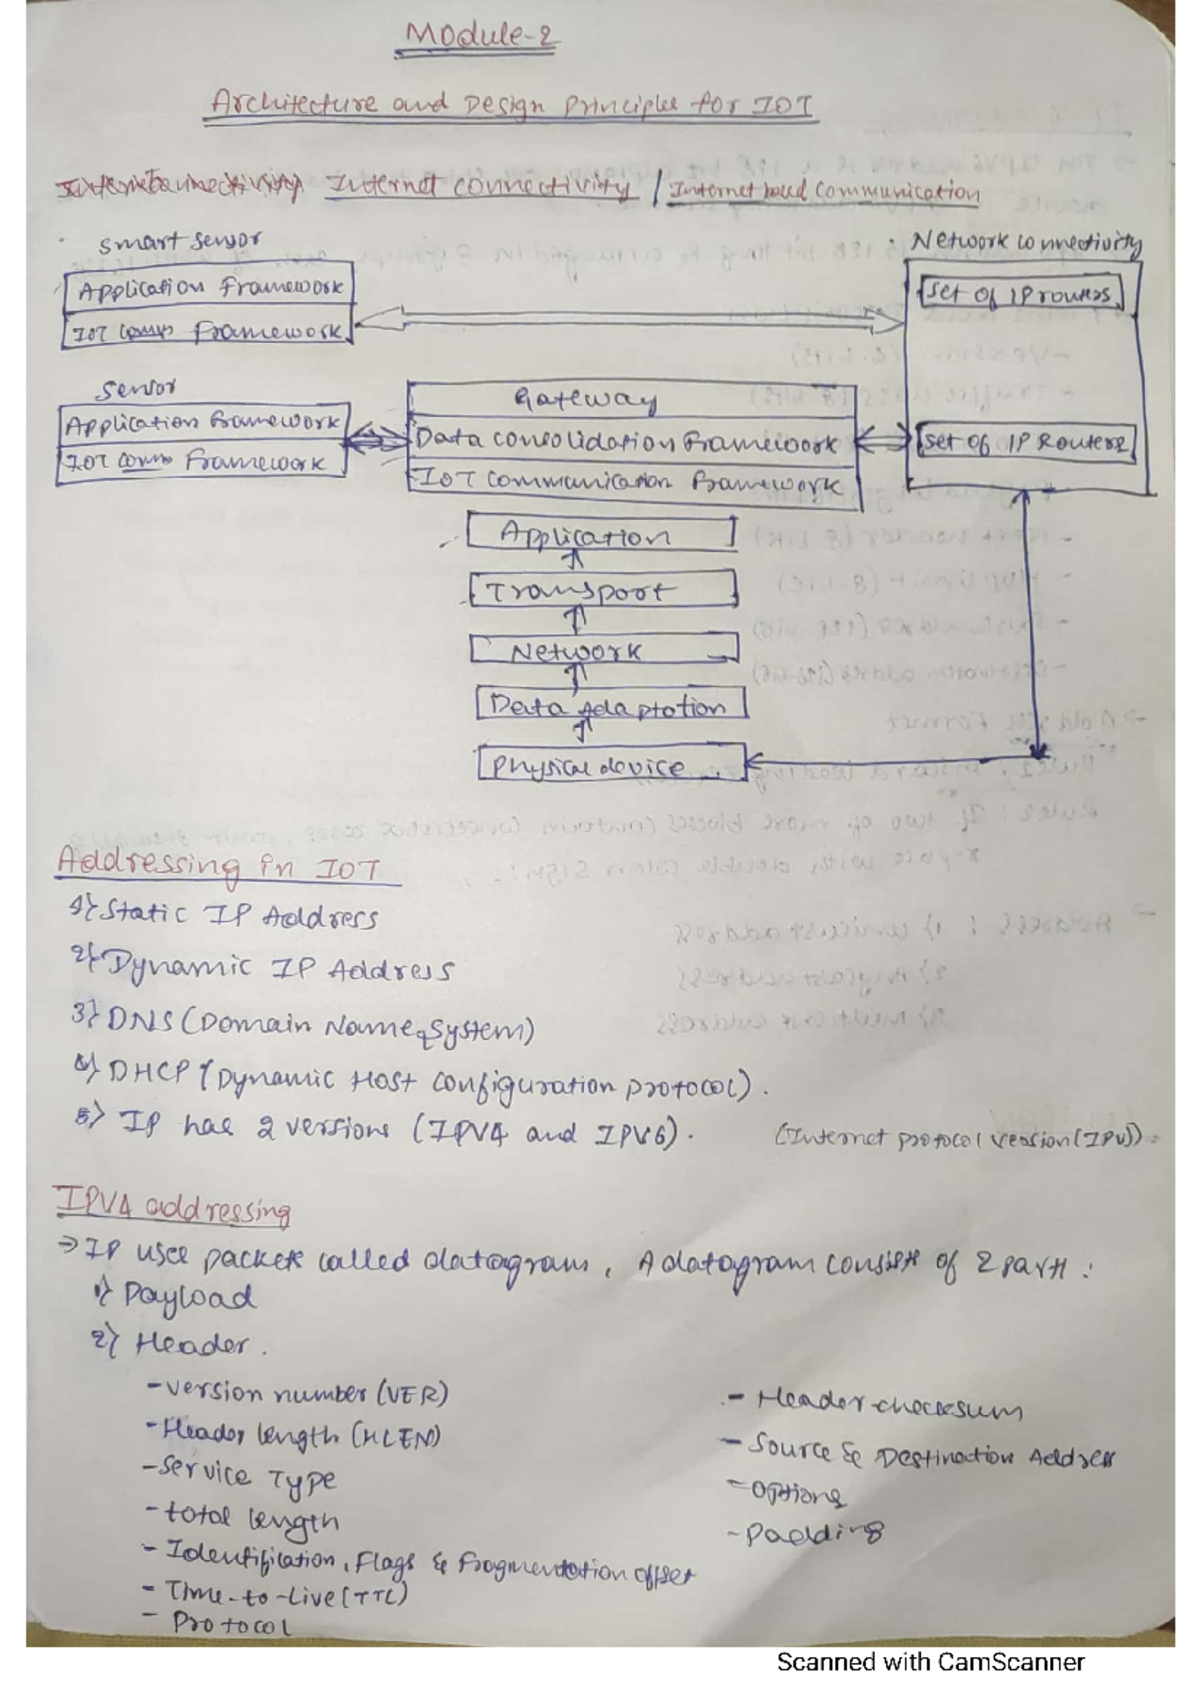 Module-2
Architecture and Design Principles for IOT
Internet connectivity / Internet based communication
smart sensor
Network connectivity
Application Framework
IOT comm Framework
set of IP routers
sensor
Application Framework
IOT comm Framework
Gateway
Data consolidation Framework
IOT communication Framework
set of IP Routers
Application
Transport
Network
Data Adaptation
physical device
Addressing in IOT
1) Static IP Address
2) Dynamic IP Address
3) DNS (Domain Name System)
4) DHCP (Dynamic Host configuration protocol).
5) IP has 2 versions (IPV4 and IPV6). (Internet protocol version (IPV)).
IPV4 addressing
→ IP uses packets called datagram, A datagram consists of 2 parts:
1) Payload
2) Header.
- version number (VER)
- Header length (HLEN)
- Service Type
- total length
- Identification, Flags & fragmentation offset
- Time-to-Live (TTL)
- Protocol
- Header checksum
- Source & Destination Address
- options
- padding
Scanned with CamScanner